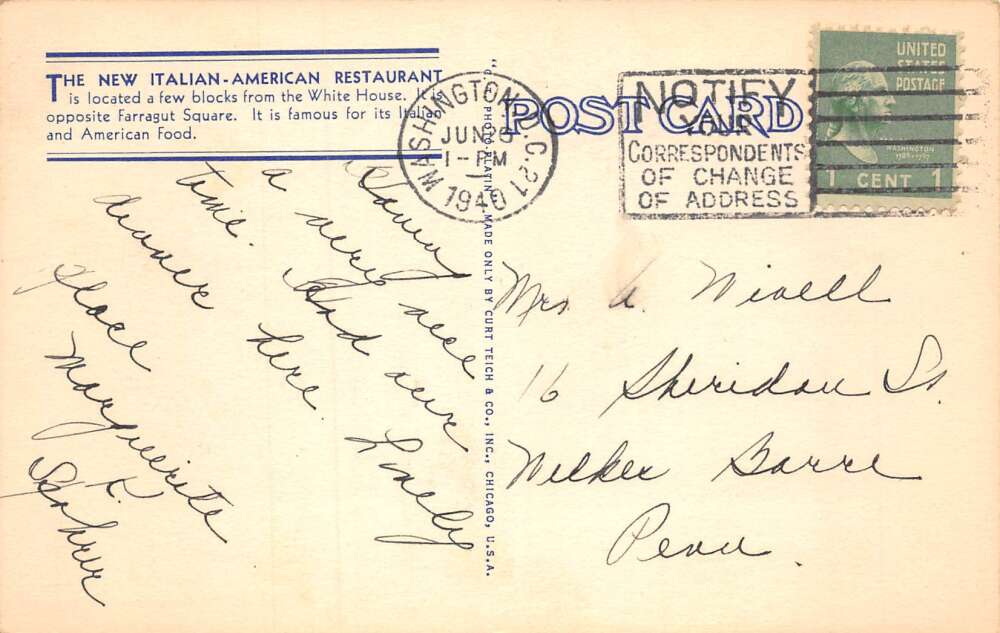 THE NEW ITALIAN-AMERICAN RESTAURANT
is located a few blocks from the White House. It is
opposite Farragut Square. It is famous for its Italian
and American Food.
Having
a very nice
time. Had our
dinner here.
Lovely
place
Marguerite
&
"C.T. PHOTO-PLATIN", MADE ONLY BY CURT TEICH & CO., INC., CHICAGO, U.S.A.
POST CARD
WASHINGTON, D.C. 21
JUN 25
1-PM
1940
NOTIFY
YOUR
CORRESPONDENTS
OF CHANGE
OF ADDRESS
UNITED
STATES
POSTAGE
WASHINGTON
1789-1797
1 CENT 1
Mrs A. Nivell
16 Sheridan St.
Wilkes Barre
Penn.